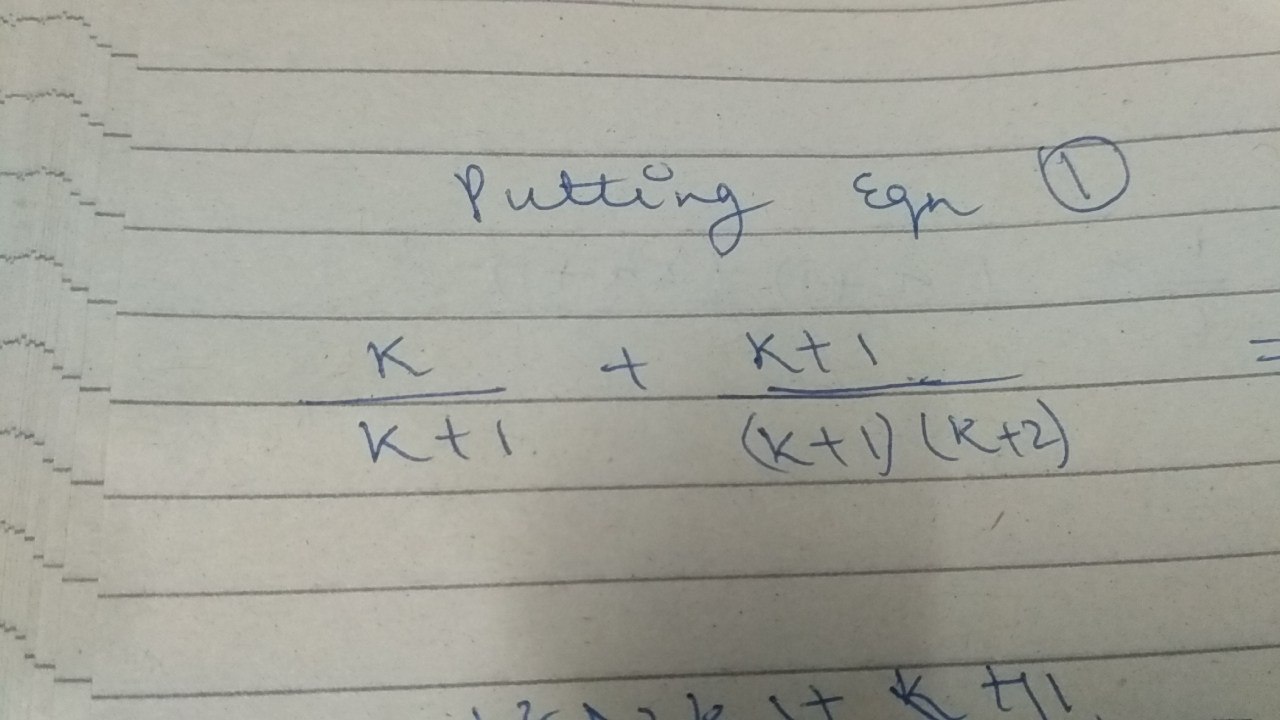 Putting Eqn ①
K + K+1 =
K+1 (K+1) (K+2)